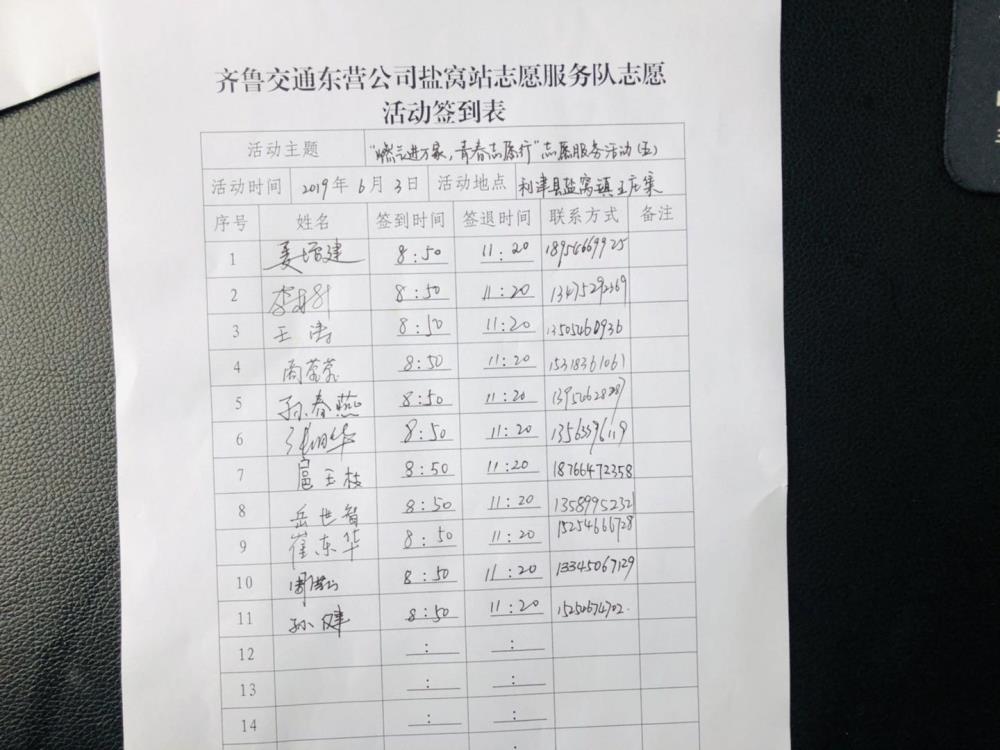 齐鲁交通东营公司盐窝站志愿服务队志愿
活动签到表
活动主题 "燃言进万家,青春志愿行"志愿服务活动(五)
活动时间 2019年6月3日 活动地点 利津县盐窝镇王庄集
序号 姓名 签到时间 签退时间 联系方式 备注
1 姜增建 8:50 11:20 18954669925
2 李 8:50 11:20 13475292369
3 王涛 8:50 11:20 13505460936
4 8:50 11:20 15318361061
5 孙春燕 8:50 11:20
6 8:50 11:20
7 扈玉枝 8:50 11:20 18766472358
8 岳世智 8:50 11:20 13589952321
9 崔东华 8:50 11:20 15254666728
10 8:50 11:20 13345067129
11 孙健 8:50 11:20
12 : :
13 : :
14 : :
: